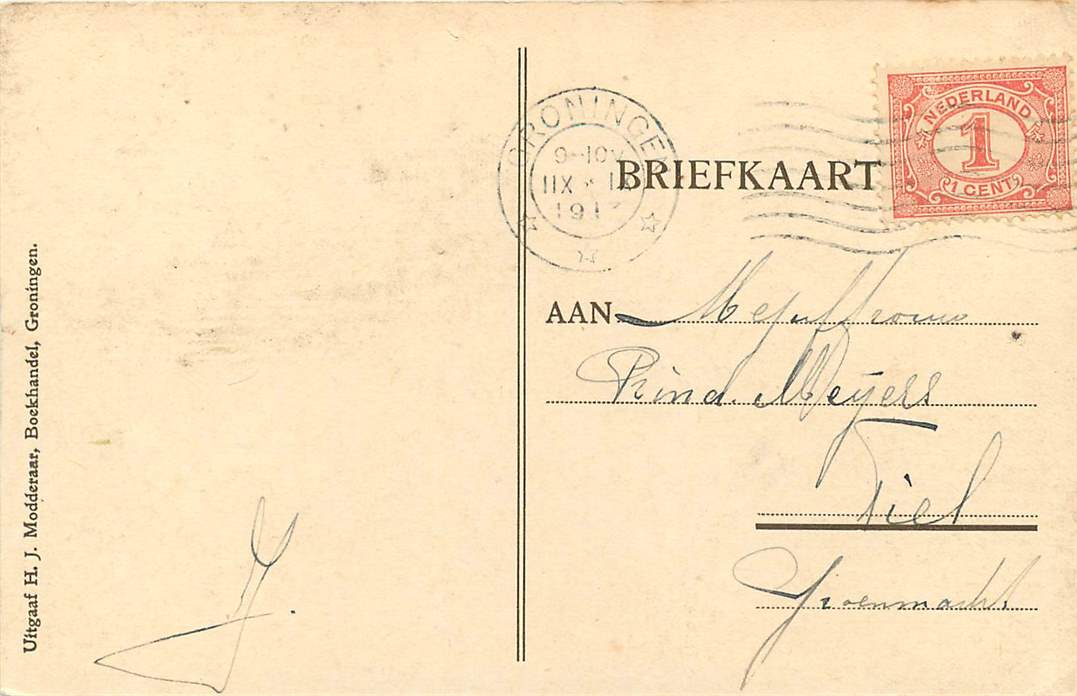 Uitgaaf H. J. Modderaar, Boekhandel, Groningen.
GRONINGEN
9-10V
191
BRIEFKAART
NEDERLAND
1
1 CENT
AAN Mejuffrouw
Meyers
Tiel
J.